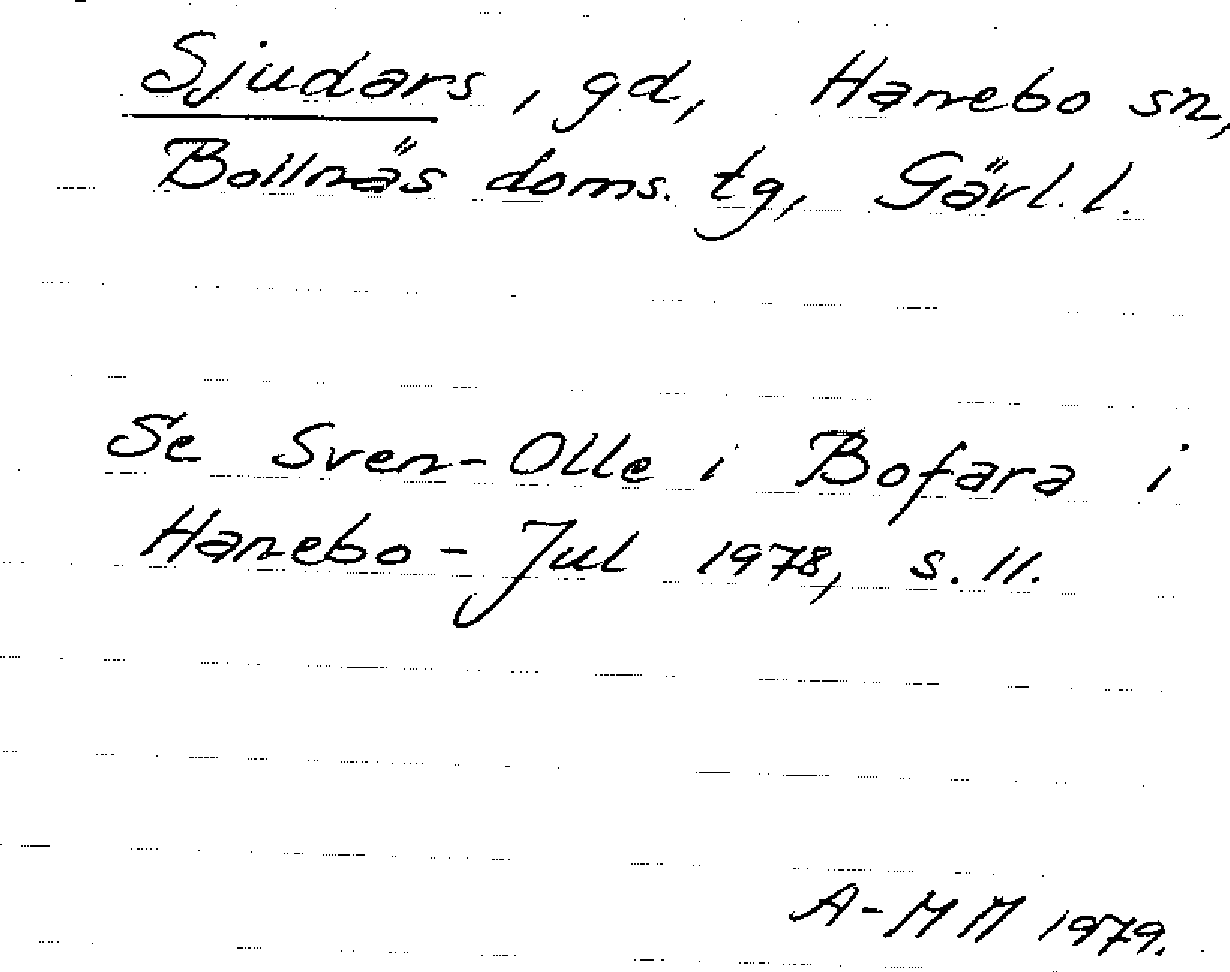 Sjudars, gd, Hanebo sn,
Bollnäs doms. tg, Gävl. l.
Se Sven-Olle i Bofara i
Hanebo-Jul 1978, s. 11.
A-MM 1979.